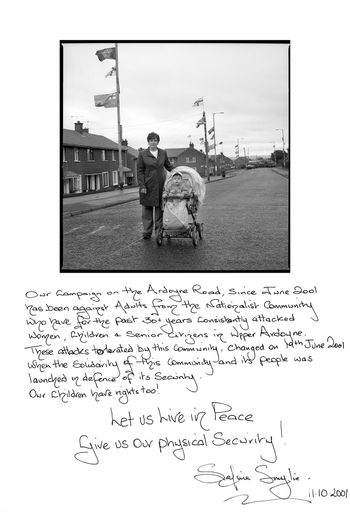 Our Campaign on the Ardoyne Road, Since June 2001
has been against Adults from the Nationalist Community
Who have for the past 30+ years Consistantly attacked
Women, Children & Senior Citizens in Upper Ardoyne.
These attacks tolerated by this Community, changed on 19th June 2001
When the Solidarity of this Community and its people was
launched in defence of its Security.
Our Children have rights too!
Let us Live in Peace
Give us Our physical Security!
Smylie.
11·10 2001